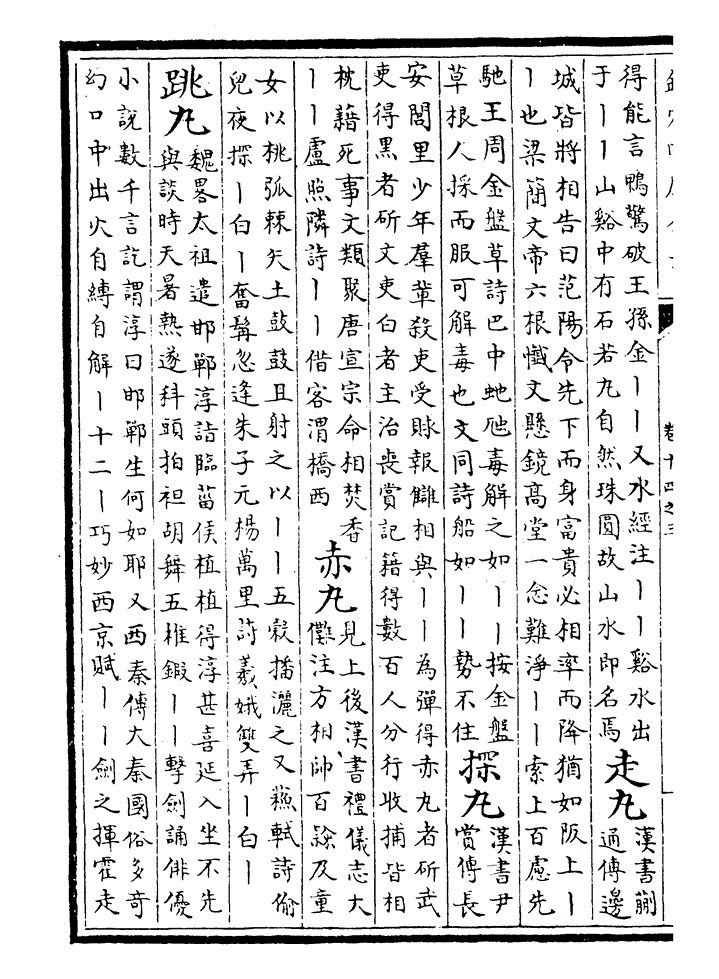 卷十四之三
得能言鴨驚破王孫金丨丨又水經注丨丨谿水出
于丨丨山谿中有石若丸自然珠圓故山水即名焉
走丸
漢書蒯
通傳邊
城皆將相告曰范陽令先下而身富貴必相率而降猶如阪上丨
丨也梁簡文帝六根懺文懸鏡高堂一念難淨丨丨索上百慮先
馳王周金盤草詩巴中虵虺毒解之如丨丨按金盤
草根人採而服可解毒也文同詩船如丨丨勢不住
探丸
漢書尹
賞傳長
安閭里少年羣輩殺吏受賕報讎相與丨丨為彈得赤丸者斫武
吏得黑者斫文吏白者主治喪賞記籍得數百人分行收捕皆相
枕藉死事文類聚唐宣宗命相焚香
丨丨盧照隣詩丨丨借客渭橋西
赤丸
見上後漢書禮儀志大
儺注方相帥百隸及童
女以桃弧棘矢土鼓鼓且射之以丨丨五穀播灑之又蘇軾詩偷
兒夜探丨白丨奮髯忽逢朱子元楊萬里詩羲娥雙弄丨白丨
跳丸
魏畧太祖遣邯鄲淳詣臨菑侯植植得淳甚喜延入坐不先
與談時天暑熱遂科頭拍袒胡舞五椎鍛丨丨擊劍誦俳優
小說數千言訖謂淳曰邯鄲生何如耶又西秦傳大秦國俗多奇
幻口中出火自縛自解丨十二丨巧妙西京賦丨丨劍之揮霍走